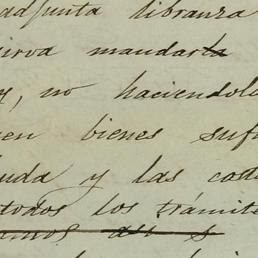 adjunta libranza
sirva mandarla
y, no haciendolo
en bienes sufi
uda y las cost
todos los trámite